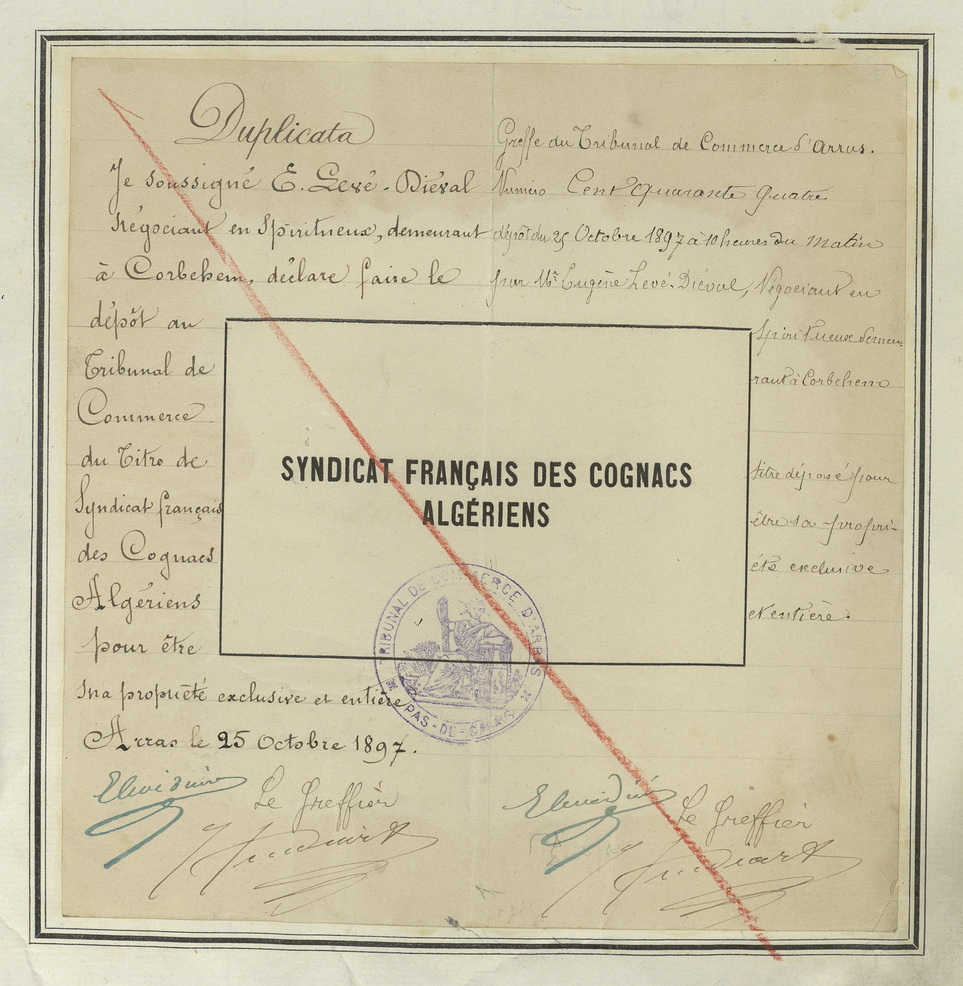 Duplicata
Je soussigné E. Levé-Diéval
Négociant en Spiritueux, demeurant
à Corbehem, déclare faire le
dépôt au
Tribunal de
Commerce
du Titre de
Syndicat français
des Cognacs
Algériens
pour être
ma propriété exclusive et entière
Arras le 25 Octobre 1897.
Le Greffier
Greffe du Tribunal de Commerce d'Arras.
Numéro Cent quarante quatre
dépôt du 25 Octobre 1897 à 10 heures du matin
par Mr Eugène Levé-Diéval, Négociant en
Spiritueux demeu-
rant à Corbehem
titre déposé pour
être sa propri-
été exclusive
et entière.
Le Greffier
SYNDICAT FRANÇAIS DES COGNACS
ALGÉRIENS
TRIBUNAL DE COMMERCE D'ARRAS
PAS-DE-CALAIS